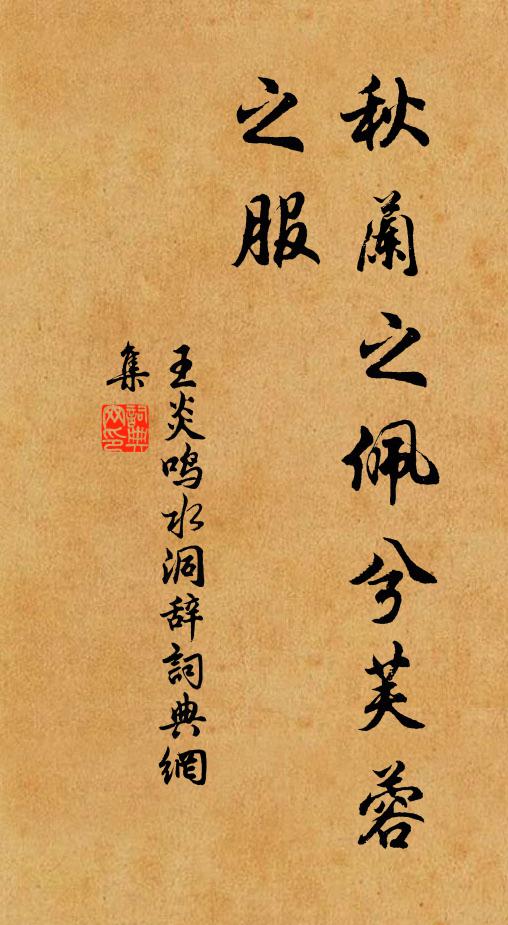 秋蘭之佩兮芙蓉
之服
王炎鸣水洞辞詞典網
集
詞典
网印